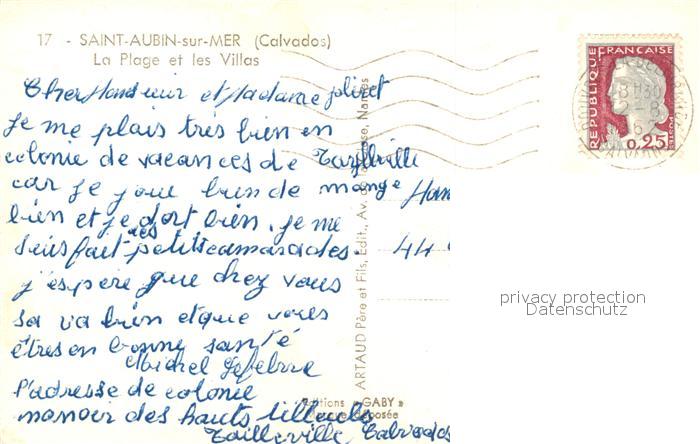 17 - SAINT-AUBIN-sur-MER (Calvados)
La Plage et les Villas
Cher Monsieur et Madame jolivet
je me plais très bien en
colonie de vacances de
car je joue bien de mange
bien et je dort bien. je me
suis fait des petits camarades.
j'espère que chez vous
sa va bien et que vous
êtres en bonne santé
Michel Lefebvre
l'adresse de colonie
manoir des hauts tilleuls
Tailleville, Calvados
44
ARTAUD Père et Fils, Edit., Av. de la Close, Nantes
Editions "GABY"
Marque déposée
REPUBLIQUE FRANÇAISE
0,25
18H30
2-8
privacy protection
Datenschutz